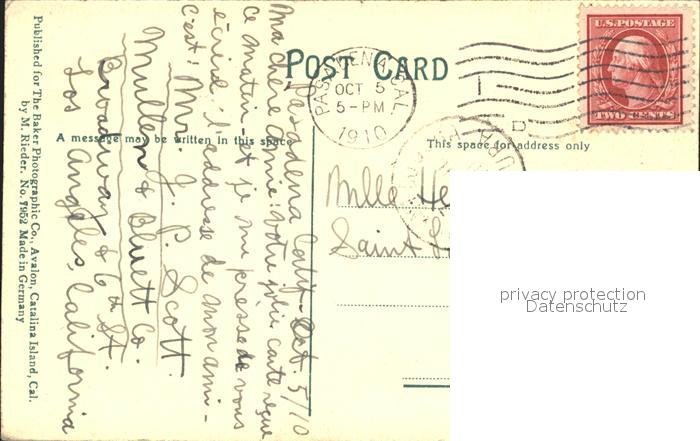 POST CARD
PASADENA, CAL.
OCT 5
5-PM
1910
D
U.S. POSTAGE
TWO CENTS
A message may be written in this space
This space for address only
Pasadena Calif. Oct. 5/10
Ma chère amie: Votre jolie carte reçue
ce matin - et je me presse de vous
écrire l'addresse de mon ami -
c'est: Mr. J. P. Scott
Mullen & Bluett Co.
Broadway & 6th St.
Los Angeles, California
Mlle He
Saint
privacy protection
Datenschutz
Published for The Baker Photographic Co., Avalon, Catalina Island, Cal.
by M. Rieder. No. 7952 Made in Germany